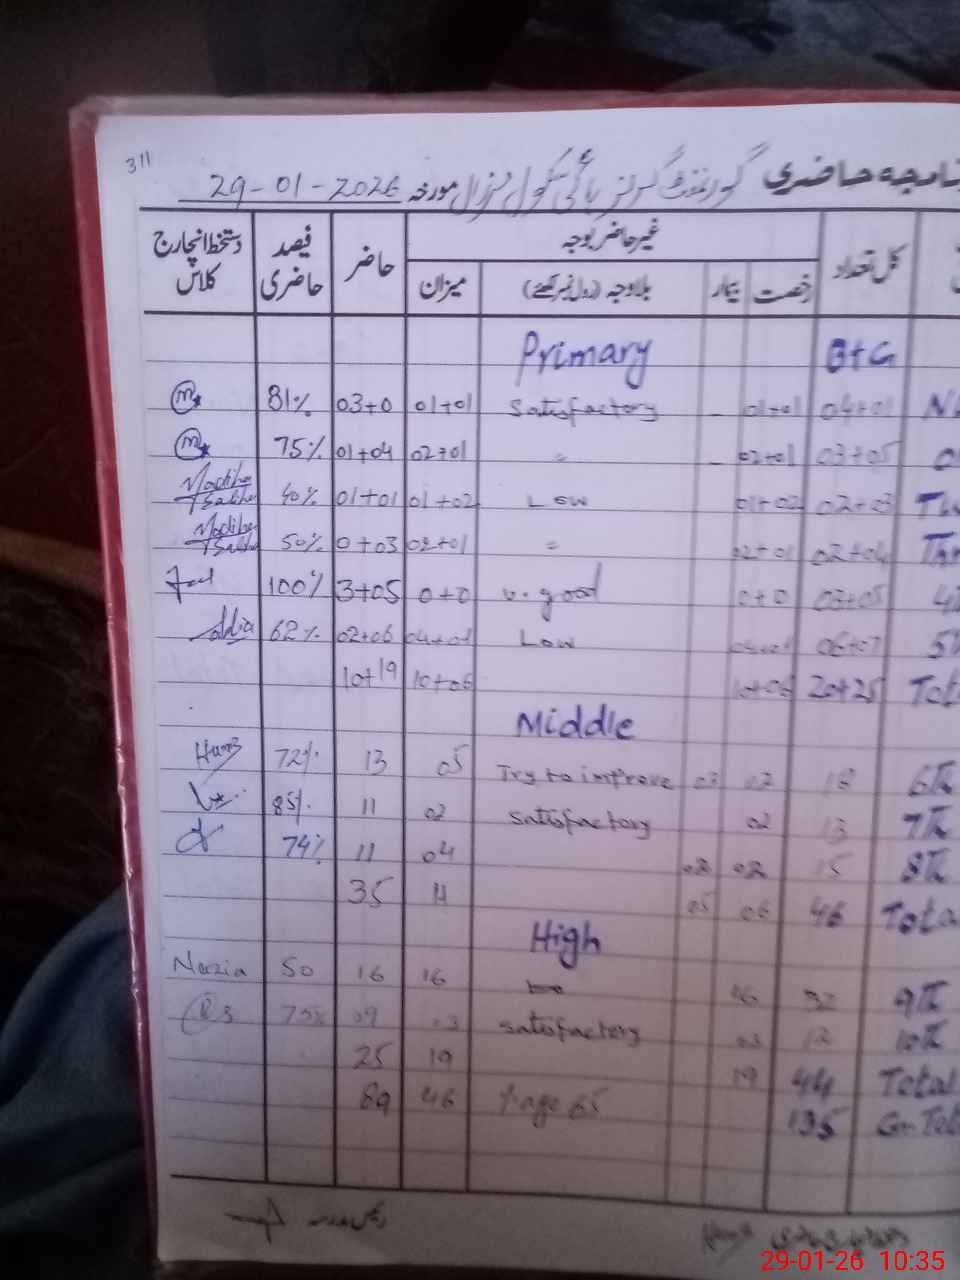 311
نامچہ حاضری گورنمنٹ گرلز ہائی سکول مورخہ 29-01-2026
کل تعداد غیر حاضر بوجہ حاضر فیصد حاضری دستخط انچارج کلاس
رخصت بیمار بلاوجہ (رول نمبر لکھئے) میزان
Primary B+G
81% 03+0 01+01 Satisfactory - 01+01 04+01
75% 01+04 02+01 = - 02+01 03+05
Madiha Sabha 40% 01+01 01+02 Low 01+02 02+03
Madiha Sabha 50% 0+03 02+01 = 02+01 02+04
100% 3+05 0+0 v.good 0+0 03+05
62% 02+06 04+01 Low 04+01 06+07
10+19 10+06 10+06 20+25 Tot
Middle
72% 13 05 Try to improve 03 02 18 6th
85% 11 02 satisfactory 02 13 7th
74% 11 04 02 02 15 8th
35 11 05 06 46 Tota
High
Nazia 50 16 16 16 32 9th
75% 09 03 satisfactory 03 12 10th
25 19 19 44 Total
89 46 %age 65 135 Gr. Tot
رئیس مدرسہ
29-01-26 10:35